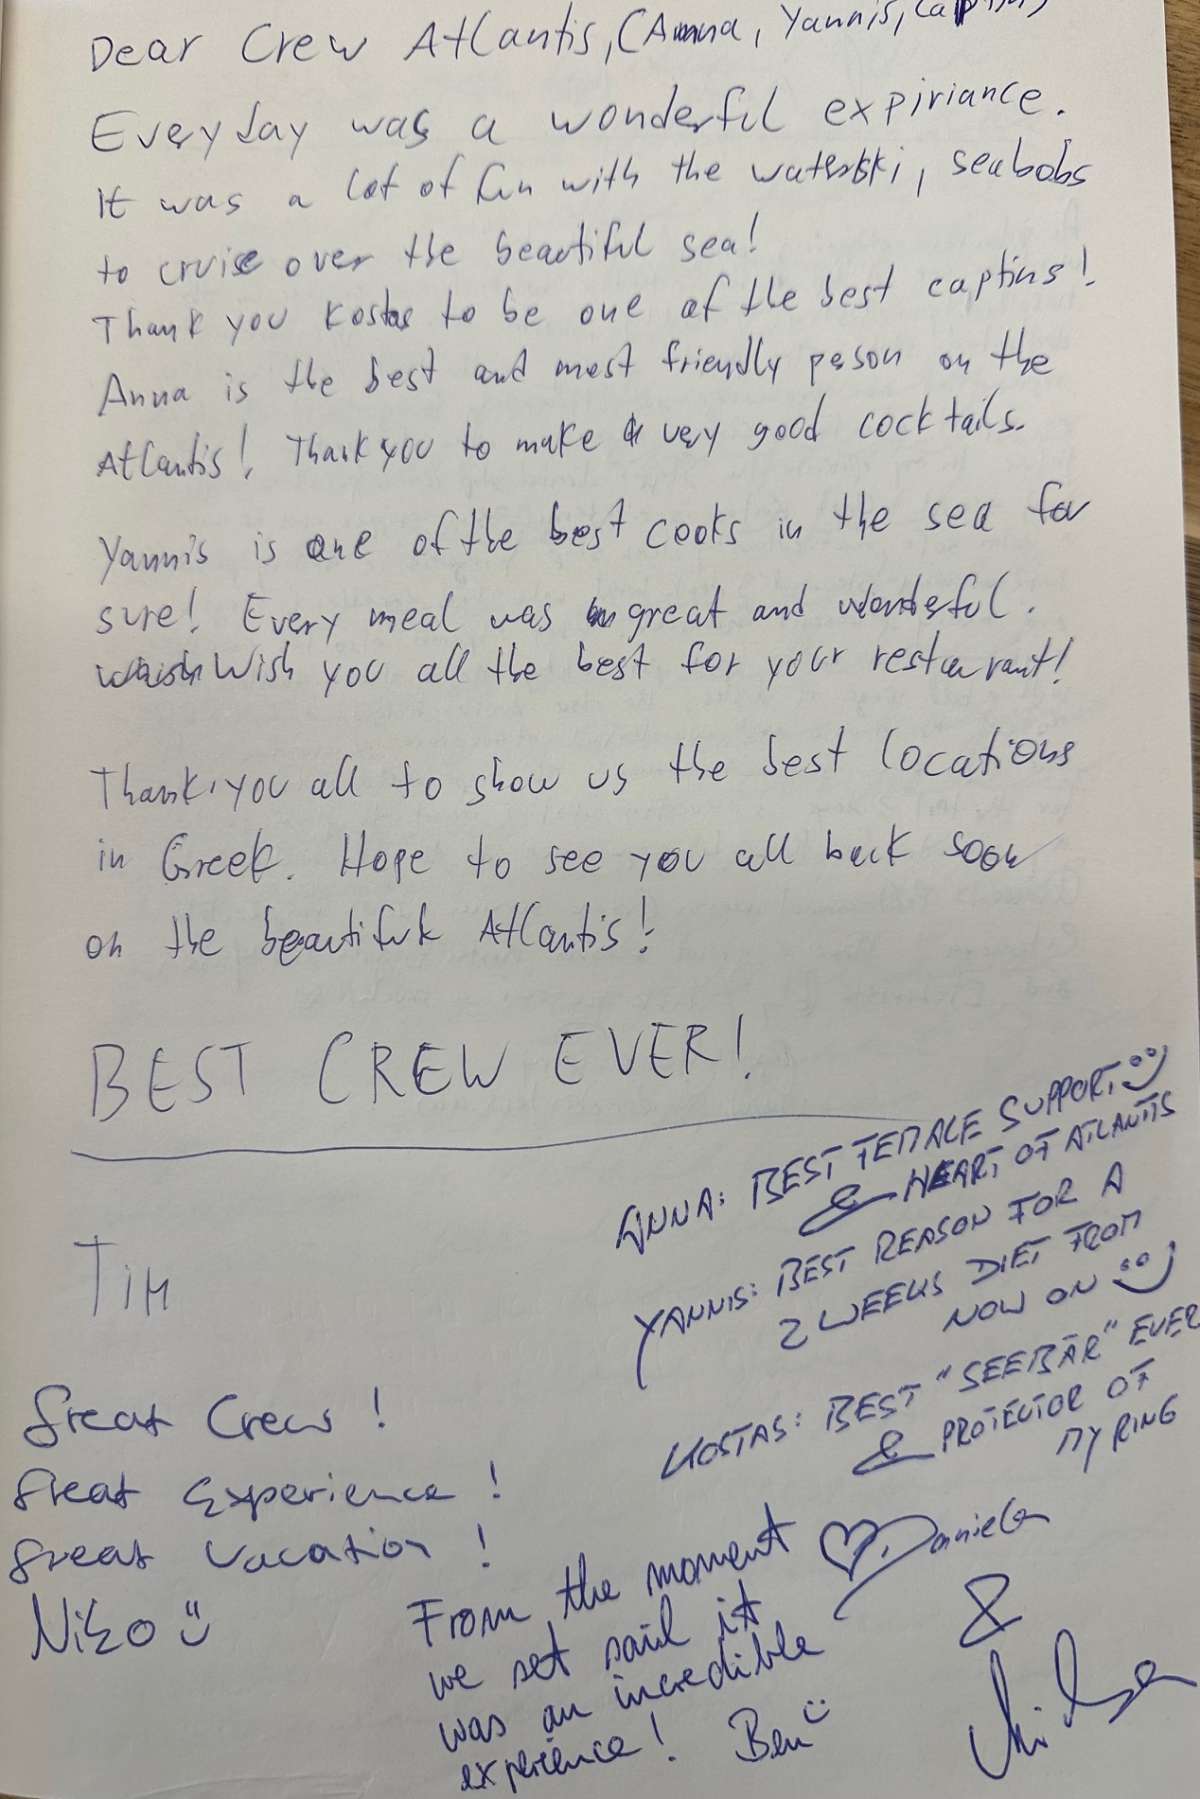 Dear Crew Atlantis, (Anna, Yannis, Captins)
Everyday was a wonderful expiriance.
It was a lot of fun with the waterski, seabobs
to cruise over the beautiful sea!
Thank you Kostas to be one of the best captins!
Anna is the best and most friendly peson on the
Atlantis! Thank you to make & very good cocktails.
Yannis is one of the best cooks in the sea for
sure! Every meal was great and wonderful.
Wish you all the best for your restaurant!
Thank you all to show us the best locations
in Greek. Hope to see you all back soon
on the beautiful Atlantis!
BEST CREW EVER!
TIM
ANNA: BEST FEMALE SUPPORT
& HEART OF ATLANTIS
YANNIS: BEST REASON FOR A
2 WEEKS DIET FROM
NOW ON
KOSTAS: BEST "SEEBÄR" EVER
& PROTECTOR OF
MY RING
Great Crew!
Great Experience!
Great Vacation!
Niko
From the moment
we set sail it
was an incredible
experience! Ben
Daniela
&